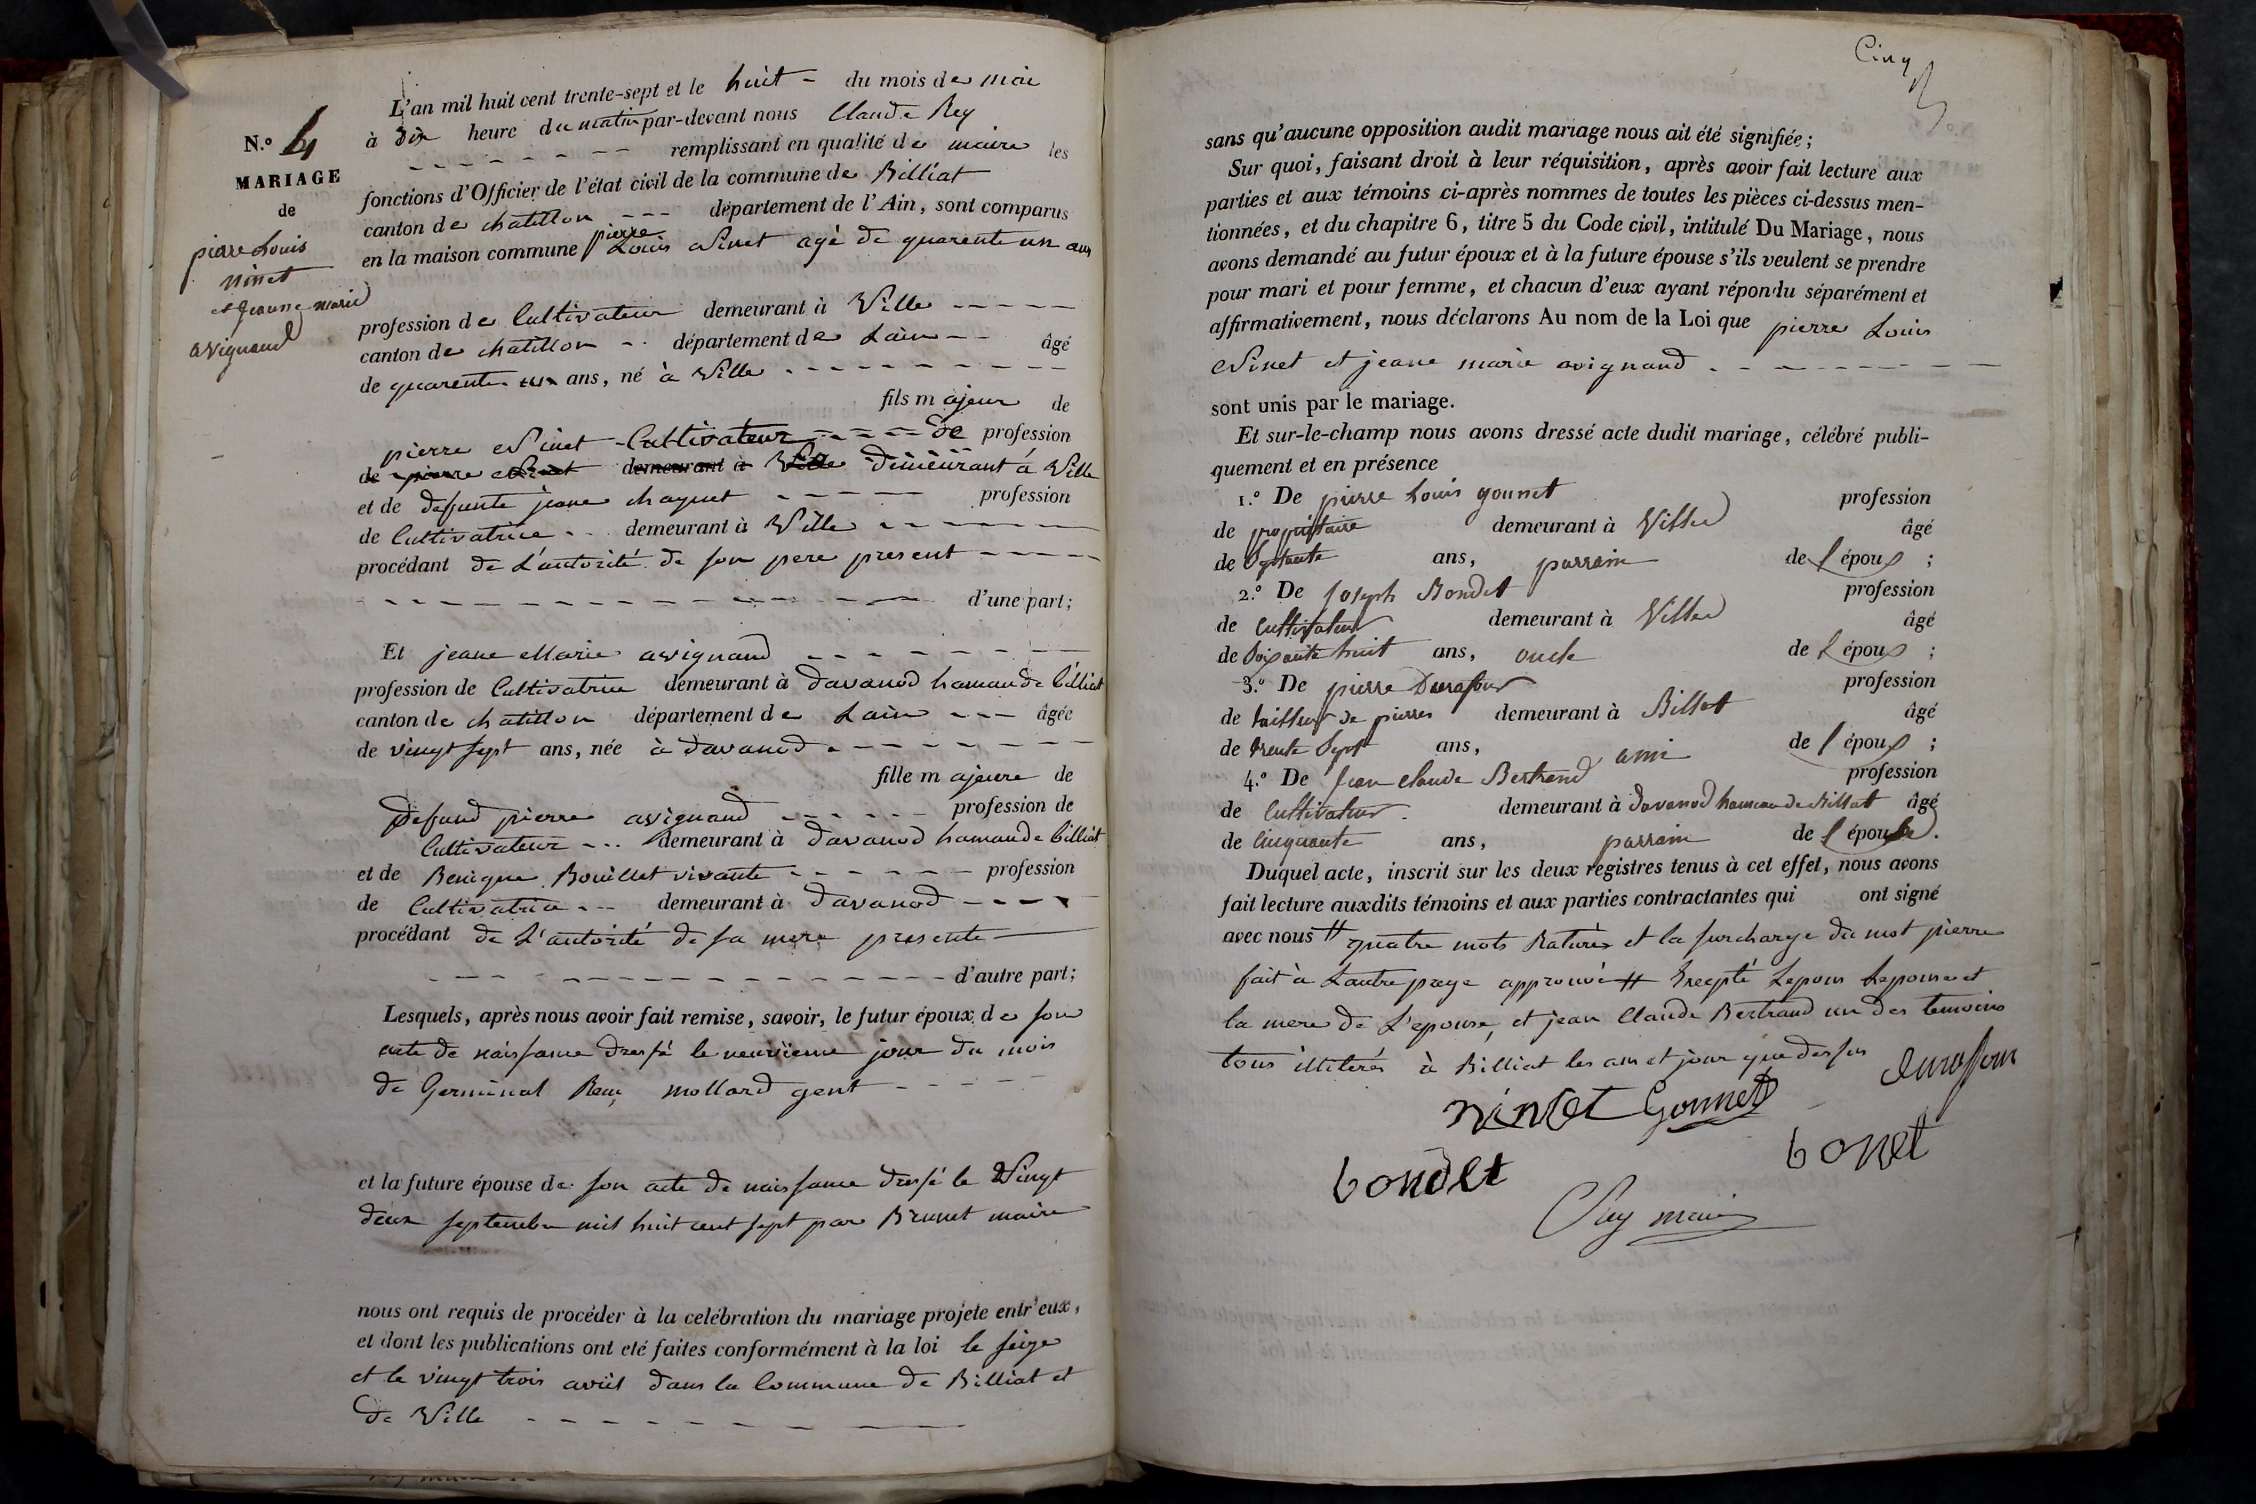 N.o 4
MARIAGE
de
pierre Louis
ninet
et jeanne marie
avignand
L'an mil huit cent trente-sept et le huit - du mois de mai
à dix heure du matin par-devant nous Claude Rey
remplissant en qualité de maire les
fonctions d'Officier de l'état civil de la commune de Billiat
canton de chatillon --- département de l'Ain, sont comparus
en la maison commune pierre Louis Ninet agé de quarente un ans
profession de Cultivateur demeurant à Ville
canton de chatillon département de Lain âgé
de quarente un ans, né à Ville
fils majeur de
pierre Ninet Cultivateur de profession
de pierre Ninet demeurant à Ville demeurant à Ville
et de defunte jeane chaynet profession
de Cultivatrice demeurant à Ville
procédant de L'autorité de son pere present
d'une part;
Et jeane Marie avignand
profession de Cultivatrice demeurant à davanod hamau de billiat
canton de chatillon département de Lain --- âgée
de vingt sept ans, née à davanod
fille majeure de
Defund pierre avignand profession de
Cultivateur demeurant à davanod hamau de billiat
et de Benigne Bouillet vivante profession
de Cultivatrice demeurant à davanod
procédant de L'autorité de sa mere presente
d'autre part;
Lesquels, après nous avoir fait remise, savoir, le futur époux de son
acte de naissance dressé le neuvieme jour du mois
de Germinal mollard gent
et la future épouse de son acte de naissance dressé le Vingt
deux septembre mil huit cent sept par Brunet maire
nous ont requis de procéder à la celébration du mariage projete entr'eux,
et dont les publications ont eté faites conformément à la loi le seize
et le vingt trois avril dans la Commune de Billiat et
de Ville
Cinq
sans qu'aucune opposition audit mariage nous ait été signifiée;
Sur quoi, faisant droit à leur réquisition, après avoir fait lecture aux
parties et aux témoins ci-après nommes de toutes les pièces ci-dessus men-
tionnées, et du chapitre 6, titre 5 du Code civil, intitulé Du Mariage, nous
avons demandé au futur époux et à la future épouse s'ils veulent se prendre
pour mari et pour femme, et chacun d'eux ayant répondu séparément et
affirmativement, nous déclarons Au nom de la Loi que pierre Louis
Ninet et jeane marie avignand
sont unis par le mariage.
Et sur-le-champ nous avons dressé acte dudit mariage, célébré publi-
quement et en présence
1.o De pierre Louis gounet profession
de propriétaire demeurant à Ville âgé
de Septante ans, parrain de l'époux ;
2.o De joseph Bondet profession
de Cultivateur demeurant à Ville âgé
de Soixante huit ans, oncle de L'époux ;
3.o De pierre Durafour profession
de tailleur de pierres demeurant à Billat âgé
de trente Sept ans, ami de l'époux ;
4.o De Jean Claude Bertrand profession
de Cultivateur demeurant à davanod hameau de Billat âgé
de Cinquante ans, parrain de l'épouse.
Duquel acte, inscrit sur les deux registres tenus à cet effet, nous avons
fait lecture auxdits témoins et aux parties contractantes qui ont signé
avec nous # quatre mots Raturés et la surcharge du mot pierre
fait à L'autre page approuvé # Excepté Lepoux Lepouse et
la mere de L'epouse, et jean Claude Bertrand un des temoins
tous illiterés à Billiat les an et jour que dessus
Durafour
ninet Gonnet
bonet
bondet
Rey maire